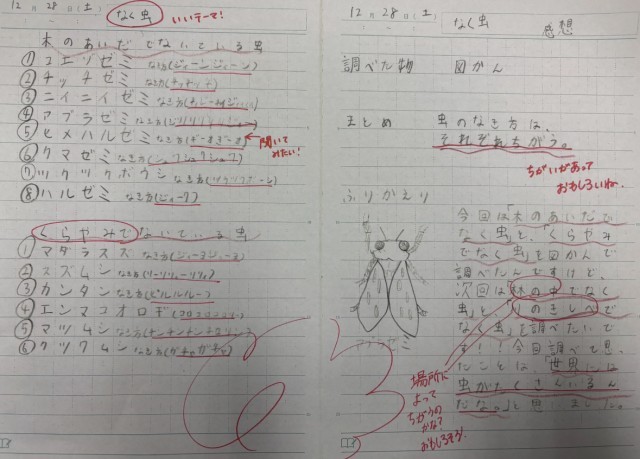 12月28日(土)
なく虫
いいテーマ!
木のあいだでないている虫
① コエゾゼミ なき方(ジィーンジィーン)
② チッチゼミ なき方(チッチッチ)
③ ニイニイゼミ なき方
④ アブラゼミ なき方
⑤ ヒメハルゼミ なき方
聞いてみたい!
⑥ クマゼミ なき方
⑦ ツクツクボウシ なき方
⑧ ハルゼミ なき方
くらやみでないている虫
① マダラスズ なき方
② スズムシ なき方
③ カンタン なき方(ピルルルー)
④ エンマコオロギ
⑤ マツムシ なき方
⑥ クツワムシ なき方(ガチャガチャ)
12月28日(土)
なく虫
感想
調べた物 図かん
まとめ 虫のなき方は、
それぞれちがう。
ちがいがあって
おもしろいね。
ふりかえり
今回は「木のあいだで
なく虫」と、「くらやみ
でなく虫」を図かんで
調べたんですけど、
次回は「林の中でなく
虫」と「のきしたで
なく虫」を調べたいで
す!!今回調べて思っ
たことは「世界には
虫がたくさんいるん
だな。」と思いました。
場所に
よって
ちがうの
かな?
おもしろそう!